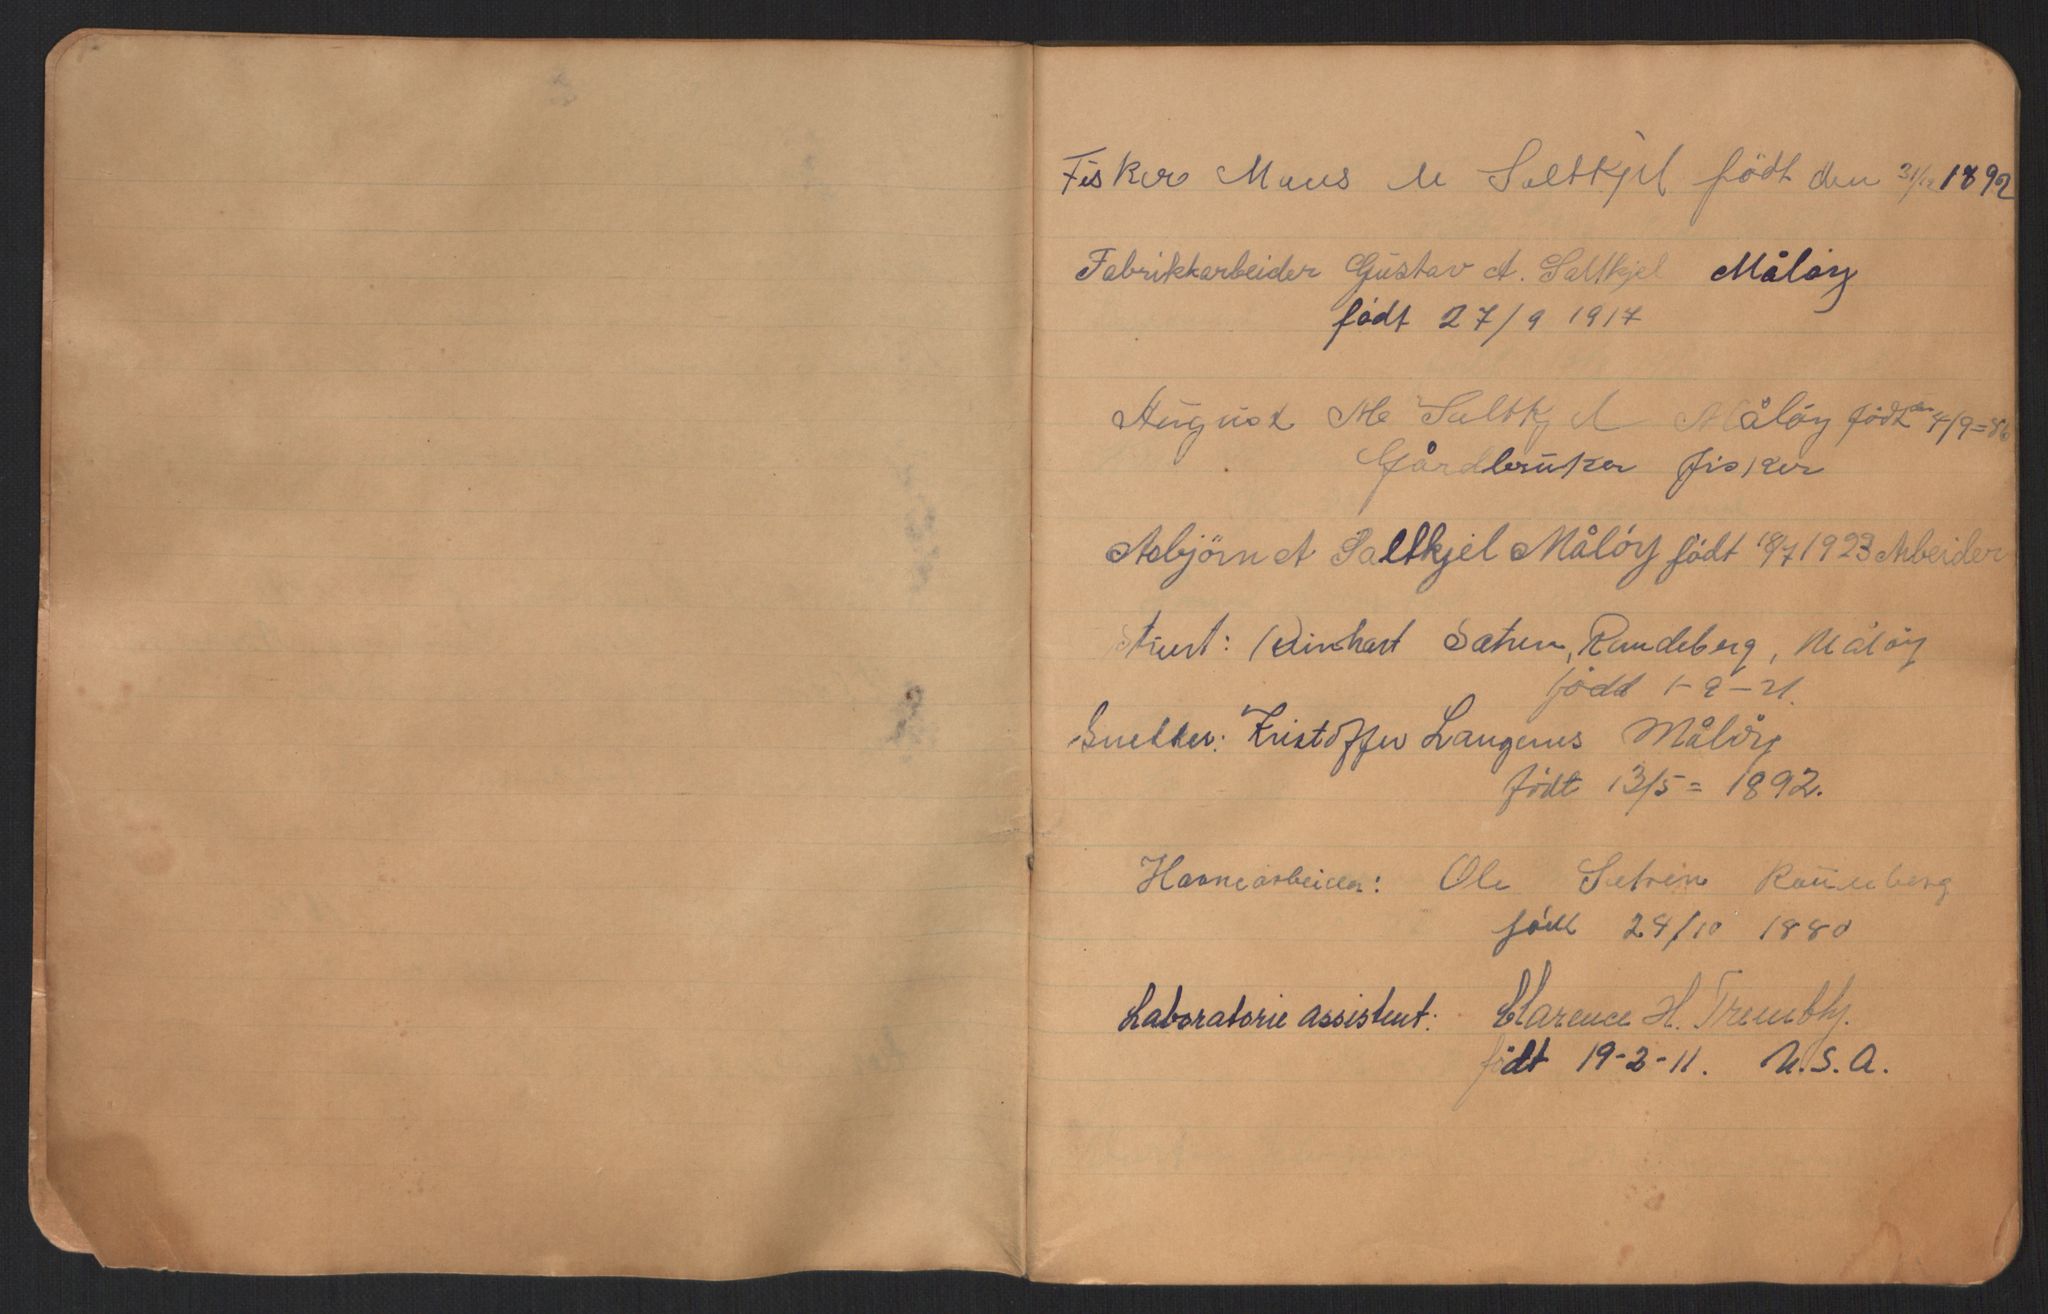 Fisker Mons M Saltkjel födt den 31/12 1892
Fabrikkarbeider Gustav A. Saltkjel Måløy
født 27/9 1917
August M Saltkjel Måløy født den 4/9=86
Gårdbruker fisker
Asbjörn A Saltkjel Måløy født 18/7 1923 Arbeider
Stuert: Reinhart Sætren, Raudeberg, Måløy
født 1-9-21.
Snekker: Kristoffer Langenes Måløy
født 13/5 = 1892.
Havnearbeider: Ole Setren Raudeberg
født 24/10 1880
Laboratorie assistent: Clarence H. Trembly.
født 19-2-11. U.S.A.